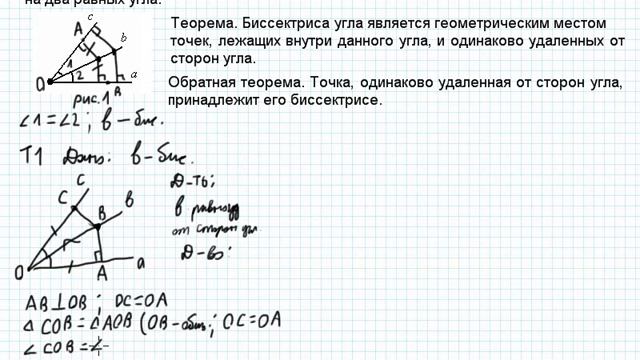 на два равных угла.
Теорема. Биссектриса угла является геометрическим местом
точек, лежащих внутри данного угла, и одинаково удаленных от
сторон угла.
Обратная теорема. Точка, одинаково удаленная от сторон угла,
принадлежит его биссектрисе.
c
A
b
1
2
O
B
a
рис.1
∠1=∠2; в – бис.
Т1 Дано: в-бис.
Д-ть:
в равноуд
от сторон
Д-во:
C
c
B
в
O
A
a
AB⊥OB; OC=OA
△COB=△AOB (OB-общ; OC=OA
∠COB=∠